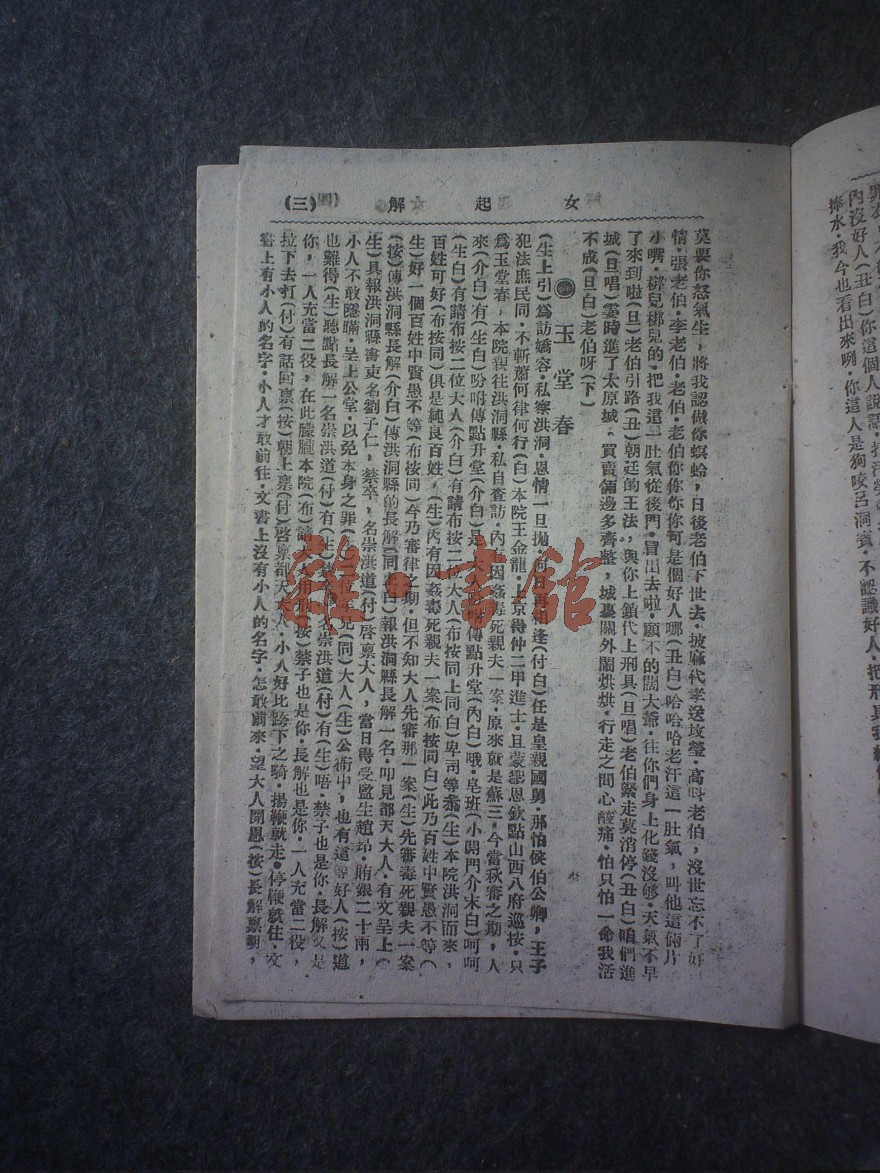 女起解 (三)
莫要你怒氣生，將我認做你螟蛉，日後老伯下世去．披麻代孝送坟瑩．高叫老伯，沒世忘不了好
情．張老伯．李老伯．老伯．老伯你你你你可是個好人哪(丑白)哈哈哈老汗這一肚氣，叫他這倆片
小嘴．梆兒梆兒的．把我這一肚氣從後門．冒出去啦．願不的闊大爺．往你們身上化錢沒够．天氣不早
了來到啦(旦)老伯引路(丑)朝廷的王法，與你上鎖代上刑具(旦唱)老伯緊走莫消停(丑白)咱們進
城(旦唱)霎時進了太原城．買賣倆邊多齊整，城裏關外鬧烘烘．行走之間心酸痛．怕只怕一命我活
不成(旦白)老伯呀(下)
玉堂春
(生上引)爲訪嬌容．私察洪洞．恩情一旦拋．何日再相逢(付白)任是皇親國舅．那怕侯伯公卿，王子
犯法庶民同．不斬蕭何律何行(白)本院王金龍．上京得仲二甲進士．且蒙聖恩欽點山西八府巡按．只
爲玉堂春．本院親往洪洞縣．私自查訪．內有因姦毒死親夫一案．原來就是蘇三．今當秋審之期，人
來(介白)有(生白)吩咐傳點升堂(介白)是．大人吩咐傳點升堂(內白)哦．皂班(小開門介末白)呵呵
(生白)有請布按二位大人(介白)有請布按二位大人(布按同上同白)卑司等參(生)本院洪洞而來．
百姓可好(布按同)俱是純良百姓．(生)內有因姦毒死親夫一案(布按同白)此乃百姓中賢愚不等(
生)好一個百姓中賢愚不等(布按同)今乃審律之期．但不知大人先審那一案(生)先審毒死親夫一案
(按)傳洪洞縣長解(介白)傳洪洞縣的長解(同上白)報洪洞縣長解一名．叩見都天大人．有文呈上(
生)具報洪洞縣書吏名劉子仁，禁卒，名崇洪道(付)啓稟大人，當日得受監生趙昂．賄銀二十兩，
小人不敢隱瞞．呈上公堂．以免本身之罪(生)二位可見(同)大人(生)公術中，也有這等好人(按)道
也難得(生)聽點長解一名崇洪道(付)有(生)禁子一名崇洪道(付)有(生)唔．禁子也是你．長解又是
你，一人充當二役，在此朦朧本院(布)請大人用刑(按)禁子也是你．長解也是你．一人充當二役，
拉下去打(付)有話回稟(按)朝上稟(付)啓稟都天大人．小人好比跨下之騎．揚鞭就走．停鞭戲住．文
書上有小人的名字．小人才敢前往．文書上沒有小人的名字．怎敢前來．望大人開恩(按)長解稟朝，
內沒好人(丑白)你這個人說話．
捧水．我今也看出來咧．你這人是狗咬呂洞賓．不認識好人．把刑具我
雜·書館